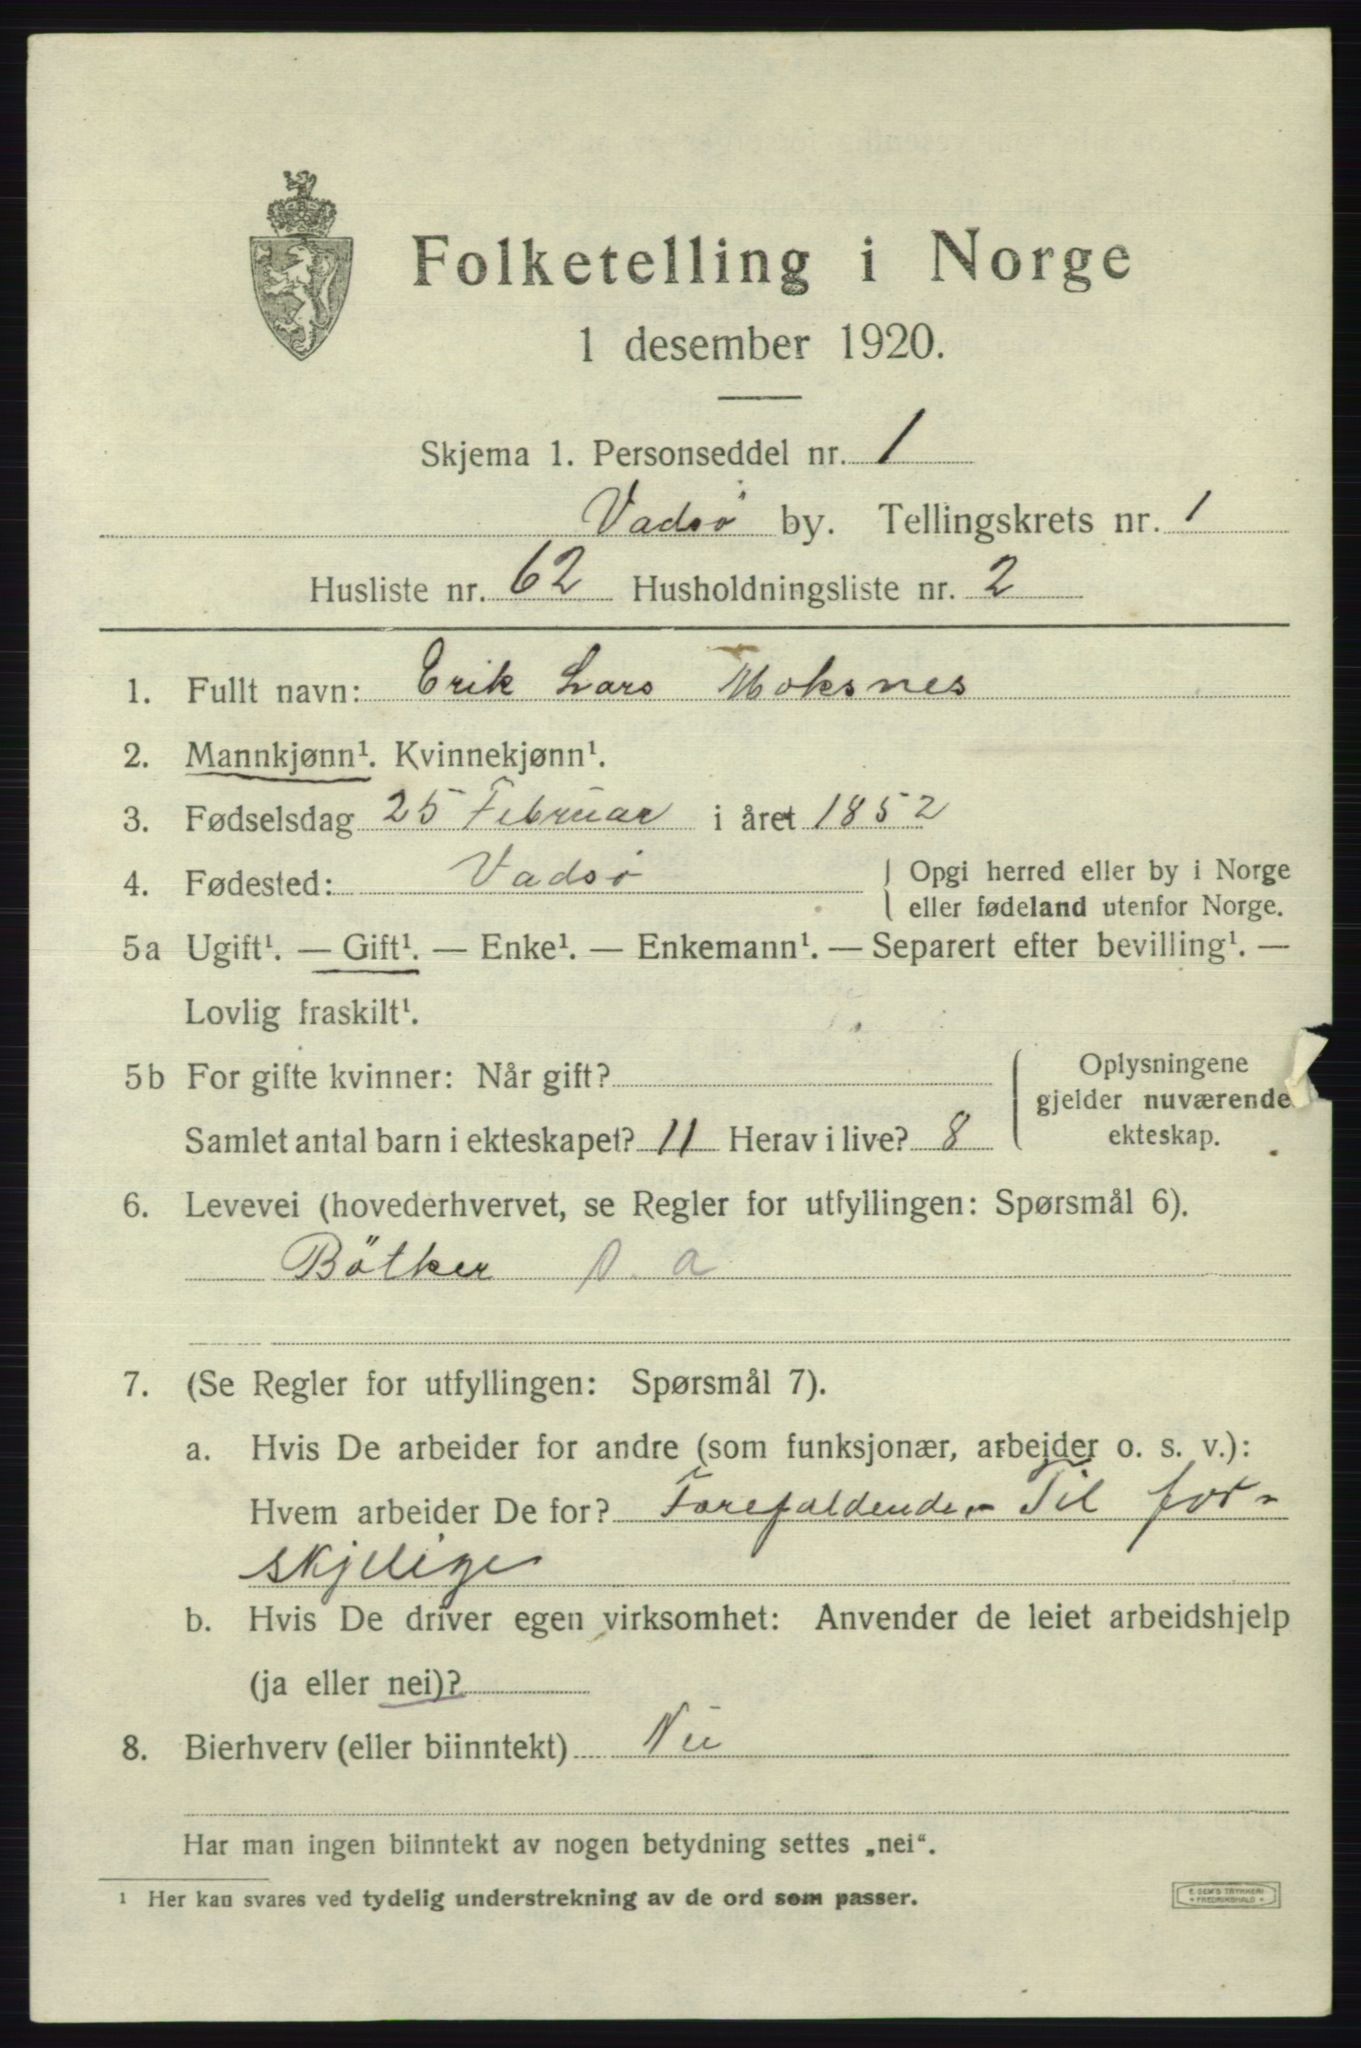 Folketelling i Norge
1 desember 1920.
Skjema 1. Personseddel nr. 1
Vadsø by. Tellingskrets nr. 1
Husliste nr. 62 Husholdningsliste nr. 2
1. Fullt navn: Erik Lars Moksnes
2. Mannkjønn¹. Kvinnekjønn¹.
3. Fødselsdag 25 Februar i året 1852
4. Fødested: Vadsø
Opgi herred eller by i Norge
eller fødeland utenfor Norge.
5a Ugift¹. — Gift¹. — Enke¹. — Enkemann¹. — Separert efter bevilling¹. —
Lovlig fraskilt¹.
5b For gifte kvinner: Når gift?
Samlet antal barn i ekteskapet? 11 Herav i live? 8
Oplysningene
gjelder nuværende
ekteskap.
6. Levevei (hovederhvervet, se Regler for utfyllingen: Spørsmål 6).
Bötker a
7. (Se Regler for utfyllingen: Spørsmål 7).
a. Hvis De arbeider for andre (som funksjonær, arbeider o. s. v.):
Hvem arbeider De for? Forefaldende Til for-
skjelige
b. Hvis De driver egen virksomhet: Anvender de leiet arbeidshjelp
(ja eller nei)?
8. Bierhverv (eller biinntekt) Nei
Har man ingen biinntekt av nogen betydning settes „nei“.
¹ Her kan svares ved tydelig understrekning av de ord som passer.
E. SEM'S TRYKKERI
• FREDRIKSHALD •